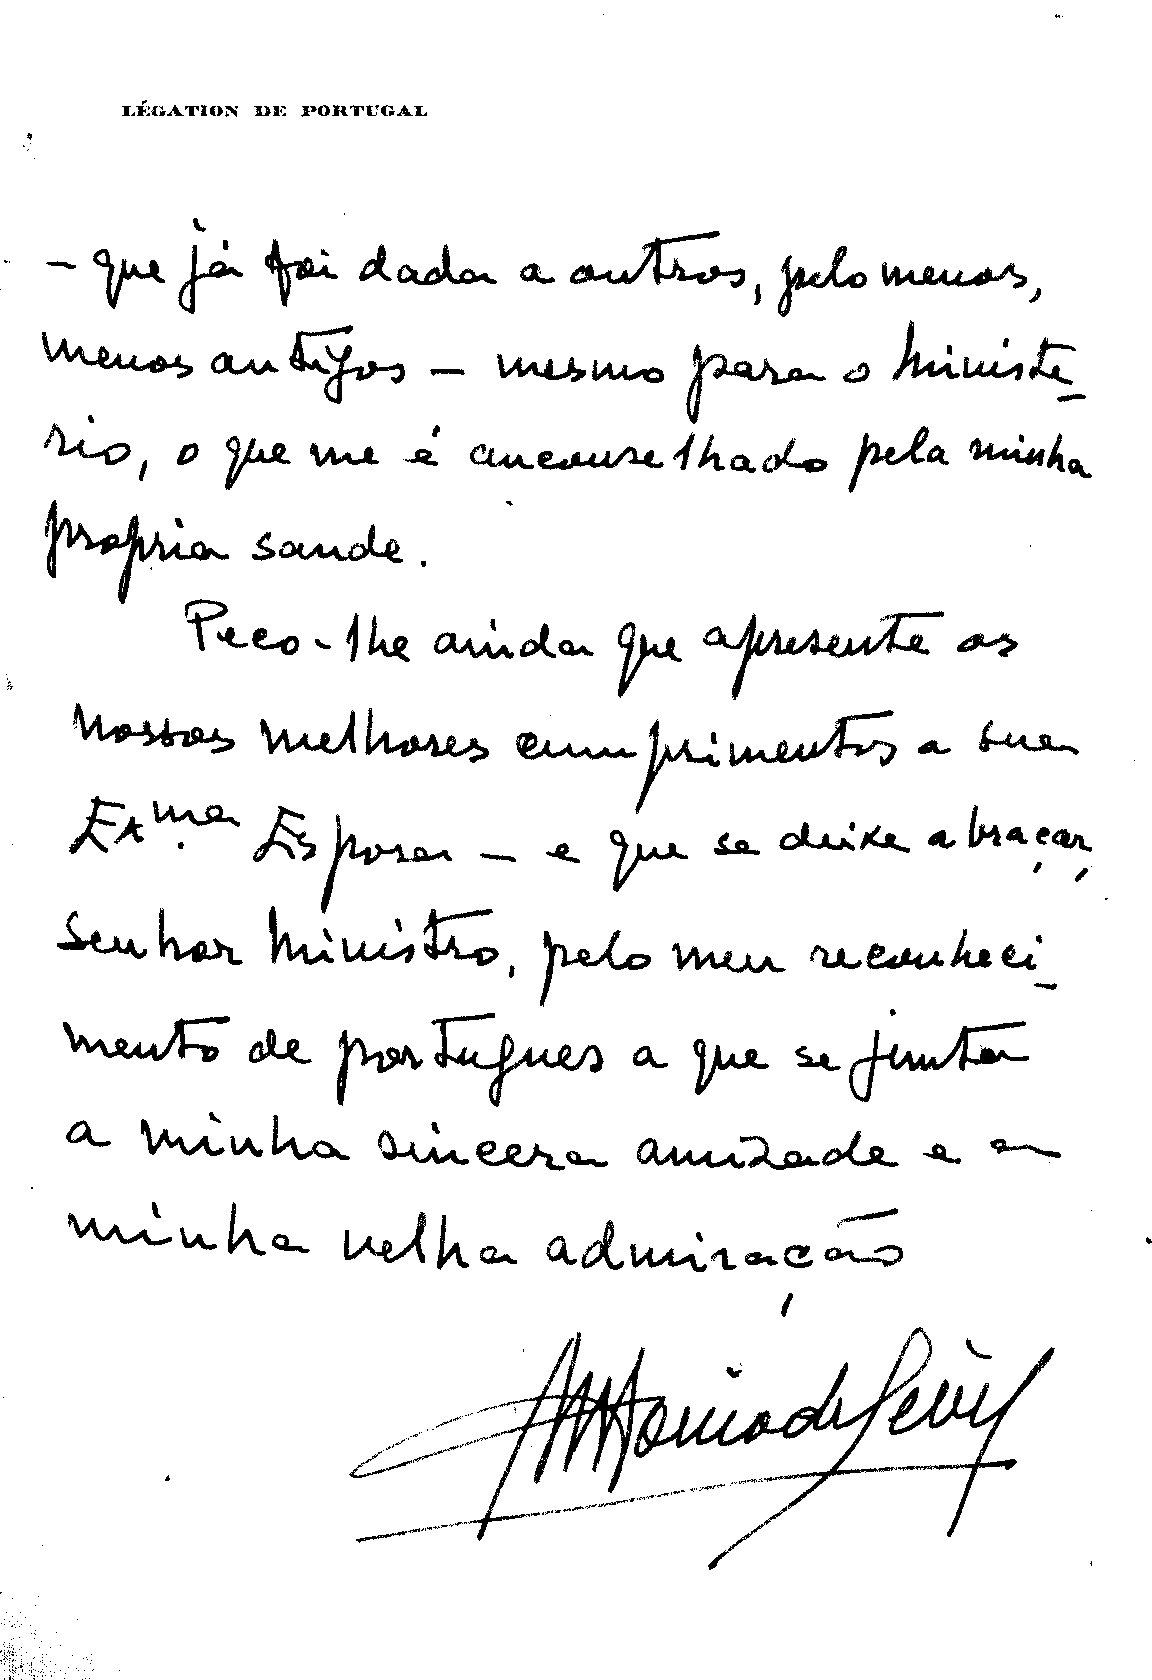 LÉGATION DE PORTUGAL
– que já foi dada a outros, pelo menos,
menos antigos – mesmo para o Ministe-
rio, o que me é anconselhado pela minha
propria saude.
Peco-lhe ainda que apresente os
nossos melhores cumprimentos a sua
Exma. Esposa – e que se deixe abraçar,
Senhor Ministro, pelo meu reconheci-
mento de portugues a que se junta
a minha sincera amizade e a
minha velha admiração